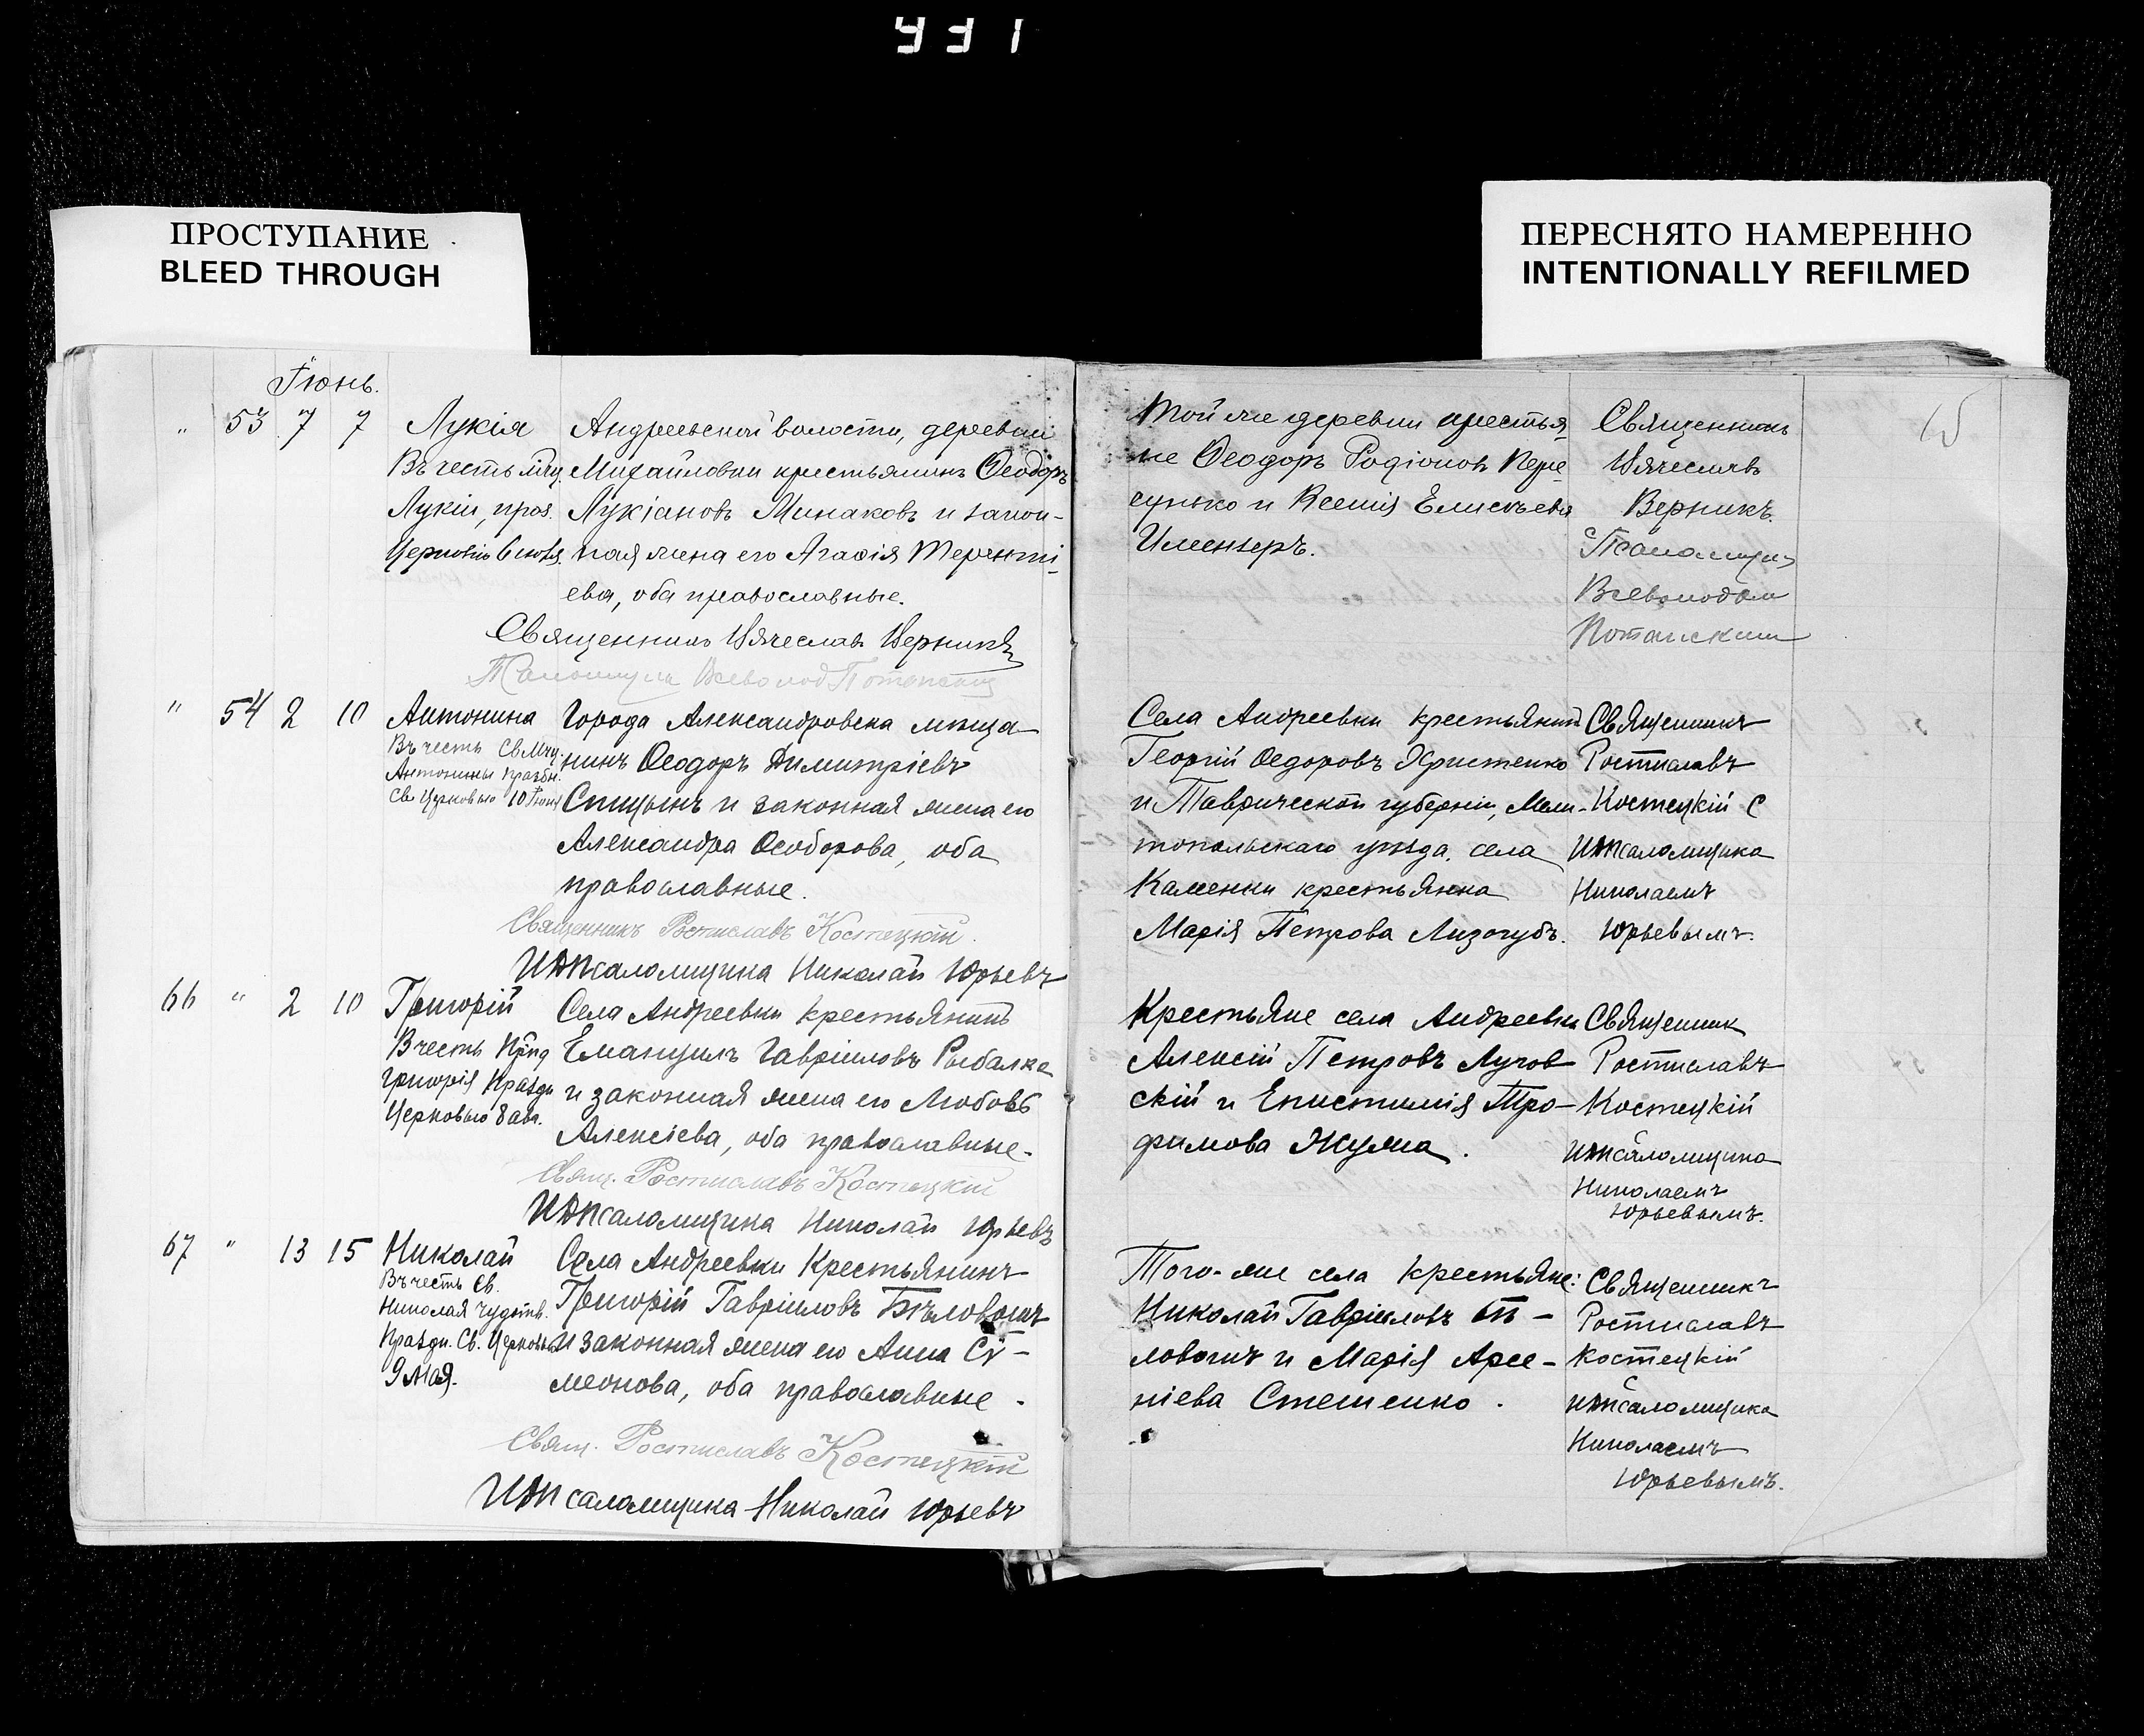 931
ПРОСТУПАНИЕ
BLEED THROUGH
ПЕРЕСНЯТО НАМЕРЕННО
INTENTIONALLY REFILMED
Іюнь.
" 53 7 7 Лукія
Въ честь мчц.
Лукіи, праз.
Церковію 6 іюля.
Андреевской волости, деревни
Михайловки крестьянинъ Ѳеодоръ
Лукіановъ Минаковъ и закон-
ная жена его Агаѳія Теренті-
ева, оба православные.
Священникъ Вячеславъ Верникъ
Псаломщикъ Всеволодъ Потапскій
Той же деревни крестья-
не Ѳеодоръ Родіоновъ Пере-
сунько и Ксенія Елисѣева
Священникъ
Вячеславъ
Верникъ.
Псаломщ.
Всеволодом
Потапским
15
" 54 2 10 Антонина
Въ честь Св Мчц.
Антонины Праздн.
Св. Церковью 10 Іюня
Города Александровска мѣща-
нинъ Ѳеодоръ Димитріевъ
Спицынъ и законная жена его
Александра Ѳеодорова, оба
православные.
Священникъ Ростиславъ Костецкій.
ИДПсаломщика Николай Юрьевъ
Села Андреевки крестьянинъ
Георгій Ѳедоровъ Христенко
и Таврической губерніи, Мели-
топольскаго уѣзда, села
Каменки крестьянка
Марія Петрова Лизогубъ.
Священникъ
Ростиславъ
Костецкій С
ИДПсаломщика
Николаемъ
Юрьевымъ.
66 " 2 10 Григорій
В честь Прпд
Григорія Праздн
Церковью 8 авг.
Села Андреевки крестьянинъ
Емануилъ Гавріиловъ Рыбалка
и законная жена его Любовь
Алексіева, оба православные.
Свящ. Ростиславъ Костецкій
ИДПсаломщика Николай Юрьевъ
Крестьяне села Андреевки
Алексій Петровъ Лугов-
скій и Епистимія Тро-
фимова Жужа.
Священник
Ростиславъ
Костецкій
С
ИДПсаломщика
Николаемъ
Юрьевымъ.
67 " 13 15 Николай
Въ честь Св.
Николая Чудотв.
Праздн. Св. Церковью
9 Мая.
Села Андреевки Крестьянинъ
Григорій Гавріиловъ Бѣловолъ
и законная жена его Анна Сѵ-
меонова, оба православные.
Свящ. Ростиславъ Костецкій
ИДПсаломщика Николай Юрьевъ
Того-же села крестьяне:
Николай Гавріиловъ Бѣ-
и Марія Арсе-
ніева Стешенко.
Священникъ
Ростиславъ
Костецкій
С
ИДПсаломщика
Николаемъ
Юрьевымъ.